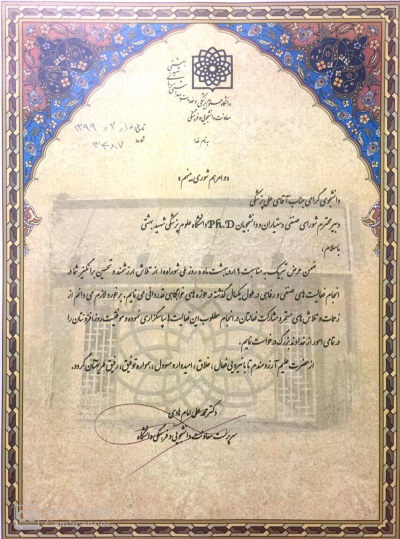 دانشگاه علوم پزشکی و خدمات بهداشتی درمانی شهید بهشتی
معاونت دانشجویی و فرهنگی
بنام خدا
تاریخ: ۱۳۹۹/۲/۱۰
شماره: ۳۴۸۷
« و امرهم شوری بینهم »
دانشجوی گرامی جناب آقای علی پزشکی
دبیر محترم شورای صنفی دستیاران و دانشجویان Ph.D دانشگاه علوم پزشکی شهید بهشتی
با سلام؛
ضمن عرض تبریک به مناسبت ۹ اردیبهشت ماه و روز ملی شوراها، از تلاش ارزشمند و تحسین برانگیز شما در
انجام فعالیت های صنفی و رفاهی در طول یکسال گذشته در حوزه های خوابگاهی قدردانی می نمایم. بر خود لازم می دانم از
زحمات و تلاش های مستمر و مشارکت فعالتان در انجام مطلوب این فعالیت ها سپاسگزاری نموده و موفقیت روزافزونتان را
در تمامی امور از خداوند بزرگ درخواست نمایم.
از حضرت علیم آرزومندم تا با نیرویی فعال، خلاق، امیدوار و مسوول، همواره توفیق، رفیق طریقتان گردد.
دکتر محمد علی امام هادی
سرپرست معاونت دانشجویی و فرهنگی دانشگاه
CamScanner